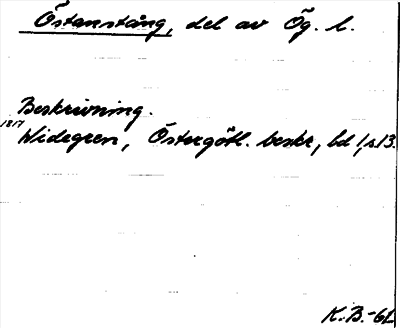 Östanstång, del av Ög. l.
Beskrivning.
1817
Widegren, Östergötl. beskr., bd 1, s 13.
K.B.-61